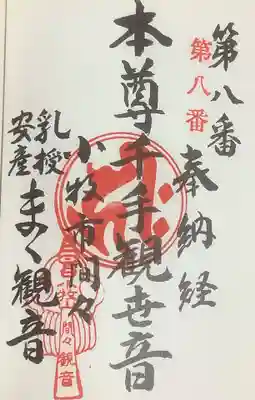 第八番
奉納経
第八番
本尊千手観世音
小牧市間々
乳授
安産
まゝ観音
小牧
間々
観音